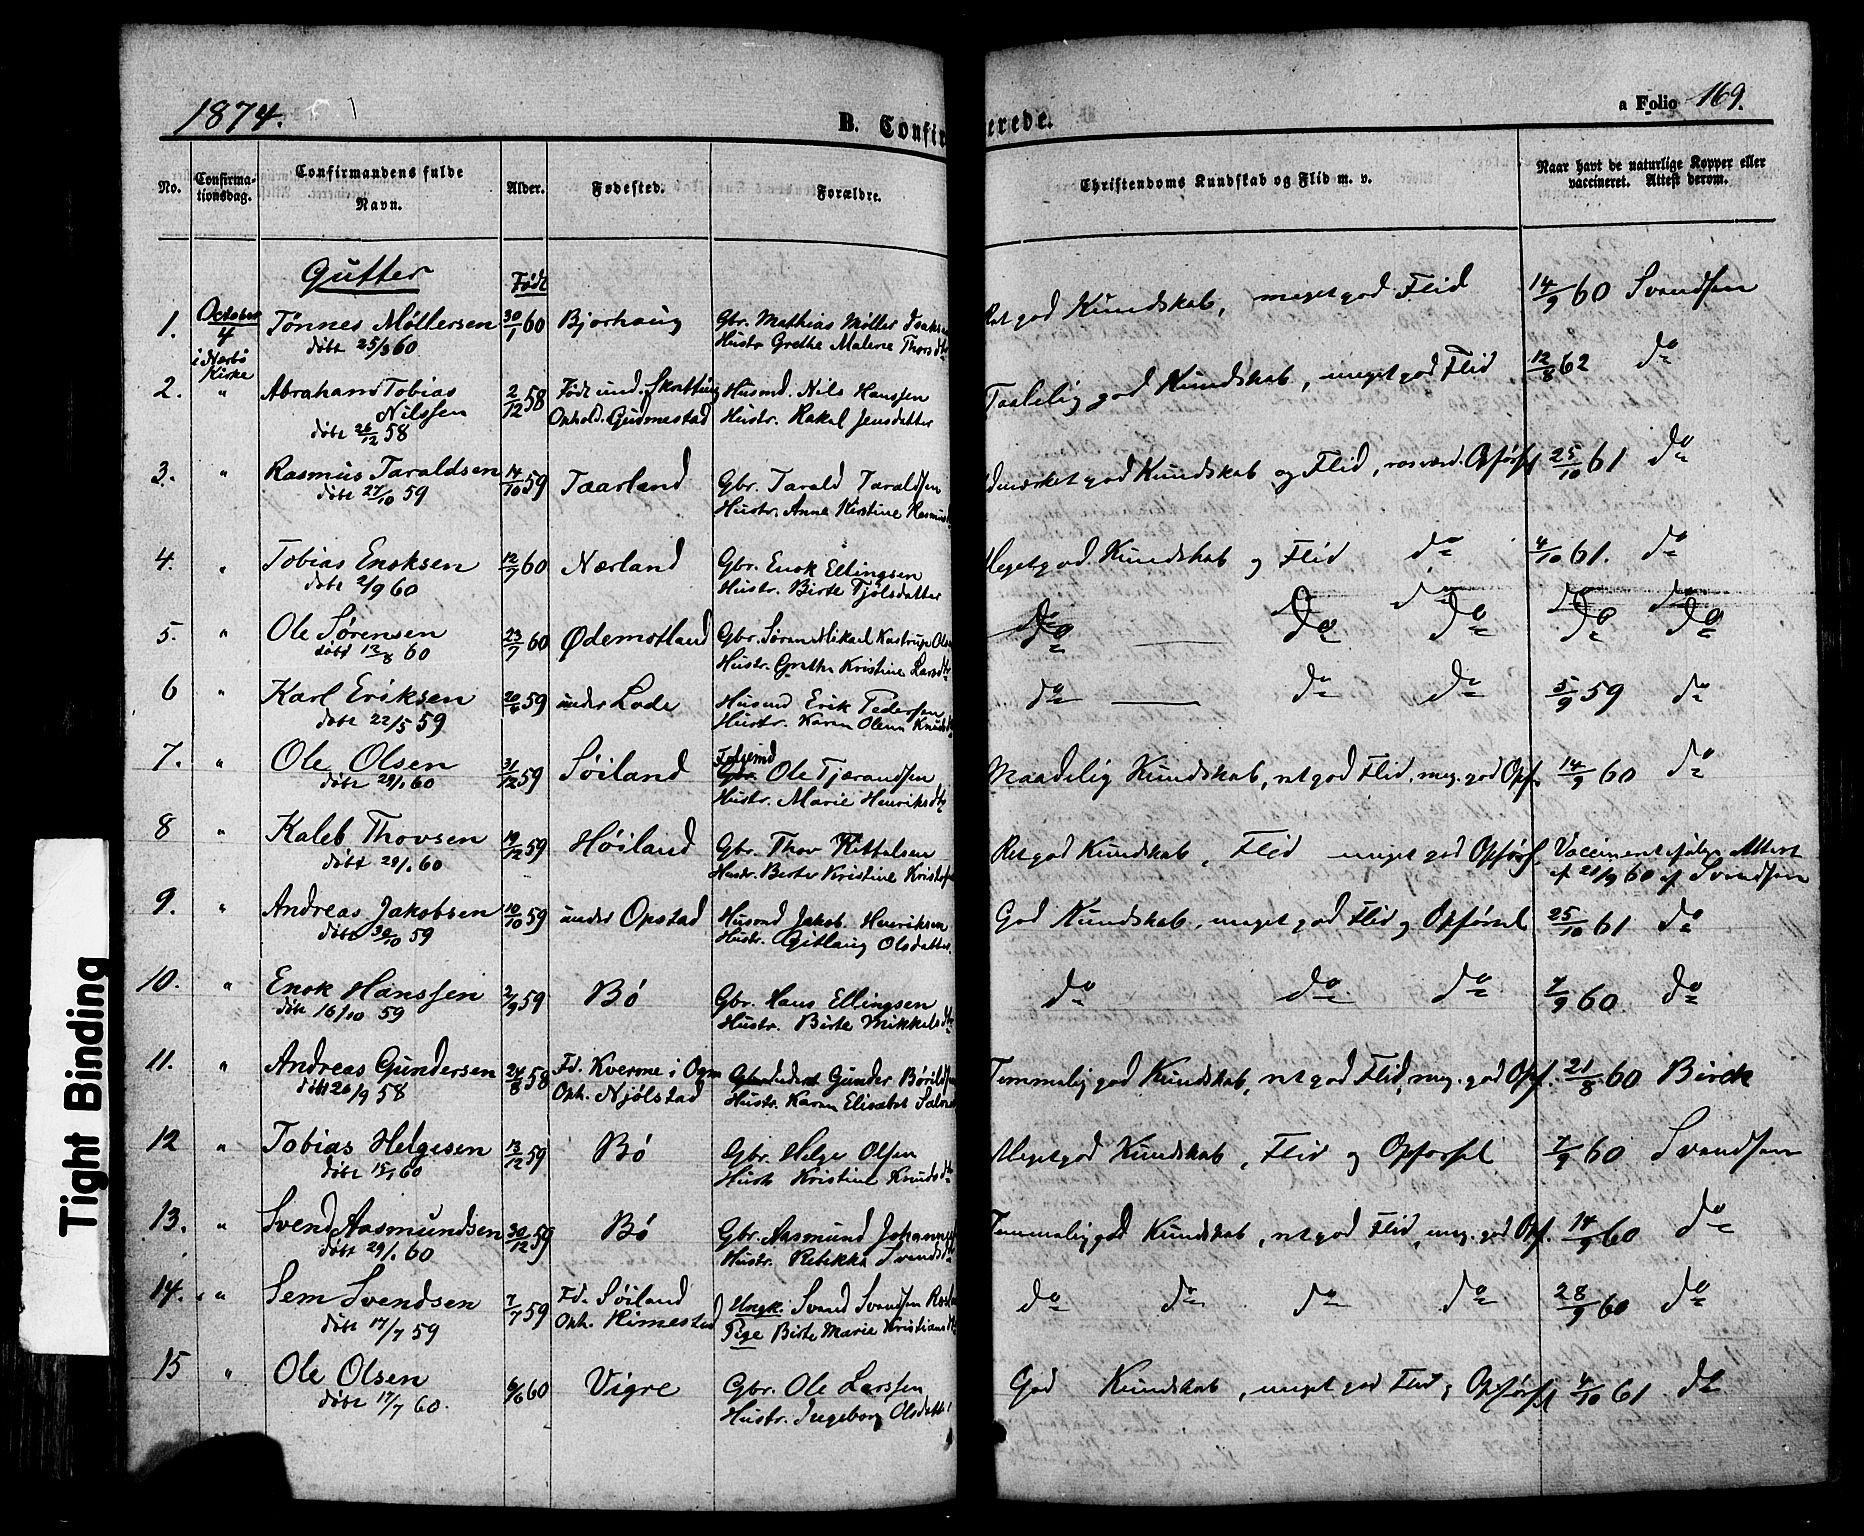 1874.
B. Confir
erede.
a Folio 169.
No.
Confirma-
tionsdag.
Confirmandens fulde
Navn.
Alder.
Fødested.
Forældre.
Christendoms Kundskab og Flid m. v.
Naar havt de naturlige Kopper eller
vaccineret. Attest derom.
Gutter
Født
1. October 4 Tønnes Møllersen 30/7 60 Bjorhaug Gbr. Mathias Møller
døbt 25/8 60 Hustr. Grethe Malene Thorsdtr
Ret god Kundskab, meget god Flid 14/9 60 Svendsen
i Nærbø
Kirke
2. " Abraham Tobias 2/12 58 Født und. Husmd. Nils Hanssen
Nilssen Ophold. Gudmestad Hustr. Rakel Jensdatter
døbt 26/12 58
Taalelig god Kundskab, meget god Flid 12/8 62 do
3. " Rasmus Taraldsen 14/10 59 Taarland Gbr. Tarald Taraldsen
døbt 27/10 59 Hustr. Anne Kirstine Rasmusd
Udmærket god Kundskab og Flid, rosværd. Opførsl 25/10 61 do
4. " Tobias Enoksen 12/7 60 Nærland Gbr. Enok Ellingsen
døbt 2/9 60 Hustr. Birte Tjølsdatter
Meget god Kundskab og Flid do 4/10 61. do
5. " Ole Sørensen 23/7 60 Ødemotland Gbr. Søren Mikael Kastrup Olsen
døbt 12/8 60 Hustr. Grethe Kristine Larsdtr
do do do do do
6 " Karl Eriksen 59 under Lode Husmd Erik Pedersen
døbt 22/5 59 Hustr. Karen Olena Knudsd
do do do 5/9 59 do
7. " Ole Olsen 31/12 59 Søiland Gbr. Ole Tjærandsen
døbt 29/1 60 Hustr. Marie Henriksdtr
Maadelig Kundskab, ret god Flid, meg. god Opf. 14/9 60 do
8 " Kaleb Thovsen 19/12 59 Høiland Gbr. Thov Kittelsen
døbt 29/1 60 Hustr. Birte Kristine
Ret god Kundskab, Flid meget god Opførs. Vaccineret ifølge Attest
af 21/9 60 af Svendsen
9. " Andreas Jakobsen 10/10 59 under Opstad Husmd Jakob Henriksen
døbt 30/10 59 Hustr. Gitlaug Olsdatter
God Kundskab, meget god Flid og Opførsel 25/10 61 do
10. " Enok Hanssen 2/9 59 Bö Gbr. Hans Ellingsen
døbt 16/10 59 Hustr. Birte Mikkelsdtr
do do do 7/9 60. do
11. " Andreas Gundersen 24/8 58 Fd. Kverme i Ogn Gunder
døbt 26/9 58 Oph. Njølstad Hustr. Karen Elisabet
Temmelig god Kundskab, ret god Flid, meg. god Opf. 21/8 60 Birck
12 " Tobias Helgesen 13/12 59 Bö Gbr. Helge Olsen
døbt 15/1 60 Hustr Kristine Knudsdtr
Meget god Kundskab, Flid og Opførsel 7/9 60 Svendsen
13. " Svend Aasmundsen 30/12 59 Bö Gbr. Aasmund
døbt 29/1 60 Hustr. Rebekka Svendsdtr
Temmelig god Kundskab, ret god Flid, meg. god Opf. 14/9 60 do
14. " Sem Svendsen 7/7 59 Fd. Søiland Ungk. Svend Svendsen
døbt 17/7 59 Oph. Himestad Pige Birte Marie Kristiansdtr
do do do do 28/9 60 do
15 " Ole Olsen 6/6 60 Vigre Gbr. Ole Larssen
døbt 17/7 60. Hustr. Ingeborg Olsdatt
God Kundskab, meget god Flid og Opførsl 4/10 61 do
Tight Binding